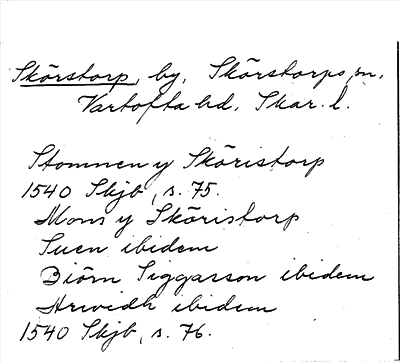 Skörstorp, by, Skörstorps sn,
Vartofta hd. Skar. l.
Stommen y Sköristorp
1540 Skjb, s. 75.
Mons y Sköristorp
Suen ibidem
Biörn Siggasson ibidem
Arwedh ibidem
1540 Skjb, s. 76.